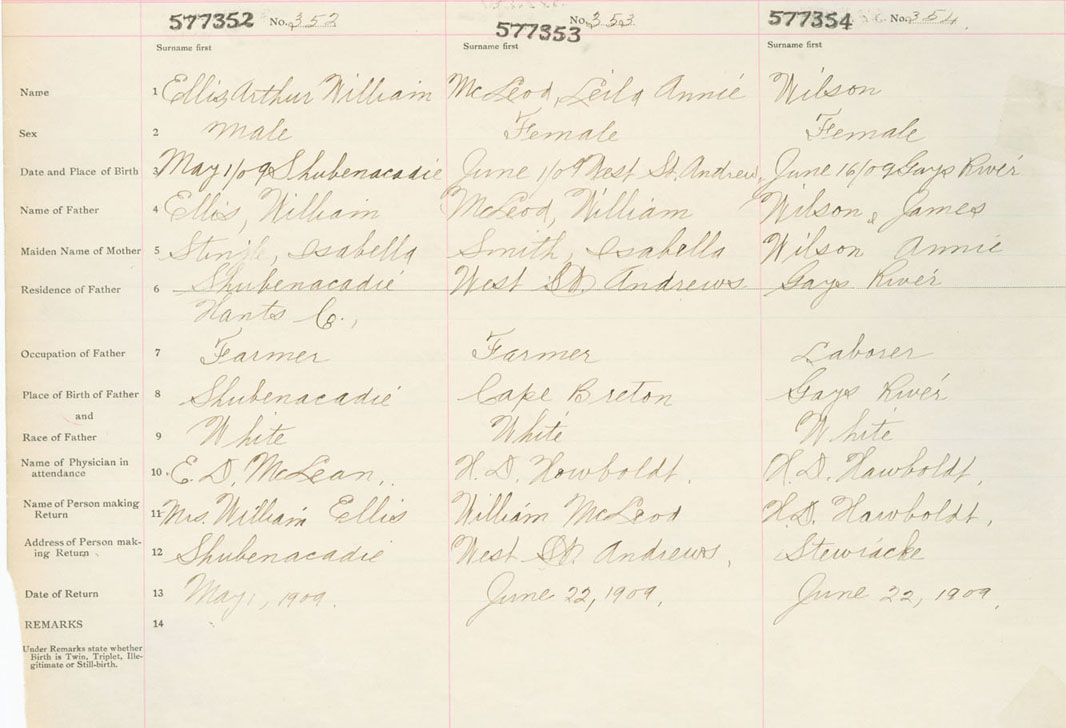 577352 No. 352 577353 No. 353 577354 No. 354.
Surname first Surname first Surname first
Name 1 Ellis Arthur William McLeod, Leila Annie Wilson
Sex 2 Male Female Female
Date and Place of Birth 3 May 1/09 Shubenacadie June 1/09 West St. Andrew, June 16/09 Gays River
Name of Father 4 Ellis, William McLeod, William Wilson, James
Maiden Name of Mother 5 Isabella Smith, Isabella Wilson Annie
Residence of Father 6 Shubenacadie West St. Andrews Gays River
Hants Co.,
Occupation of Father 7 Farmer Farmer Laborer
Place of Birth of Father 8 Shubenacadie Cape Breton Gays River
and
Race of Father 9 White White White
Name of Physician in
attendance 10 E. D. McLean, H. D. Hawboldt, H. D. Hawboldt,
Name of Person making
Return 11 Mrs. William Ellis William McLeod H.D. Hawboldt,
Address of Person mak-
ing Return 12 Shubenacadie West St. Andrews, Stewiacke
Date of Return 13 May 1, 1909. June 22, 1909, June 22, 1909,
REMARKS 14
Under Remarks state whether
Birth is Twin, Triplet, Ille-
gitimate or Still-birth.